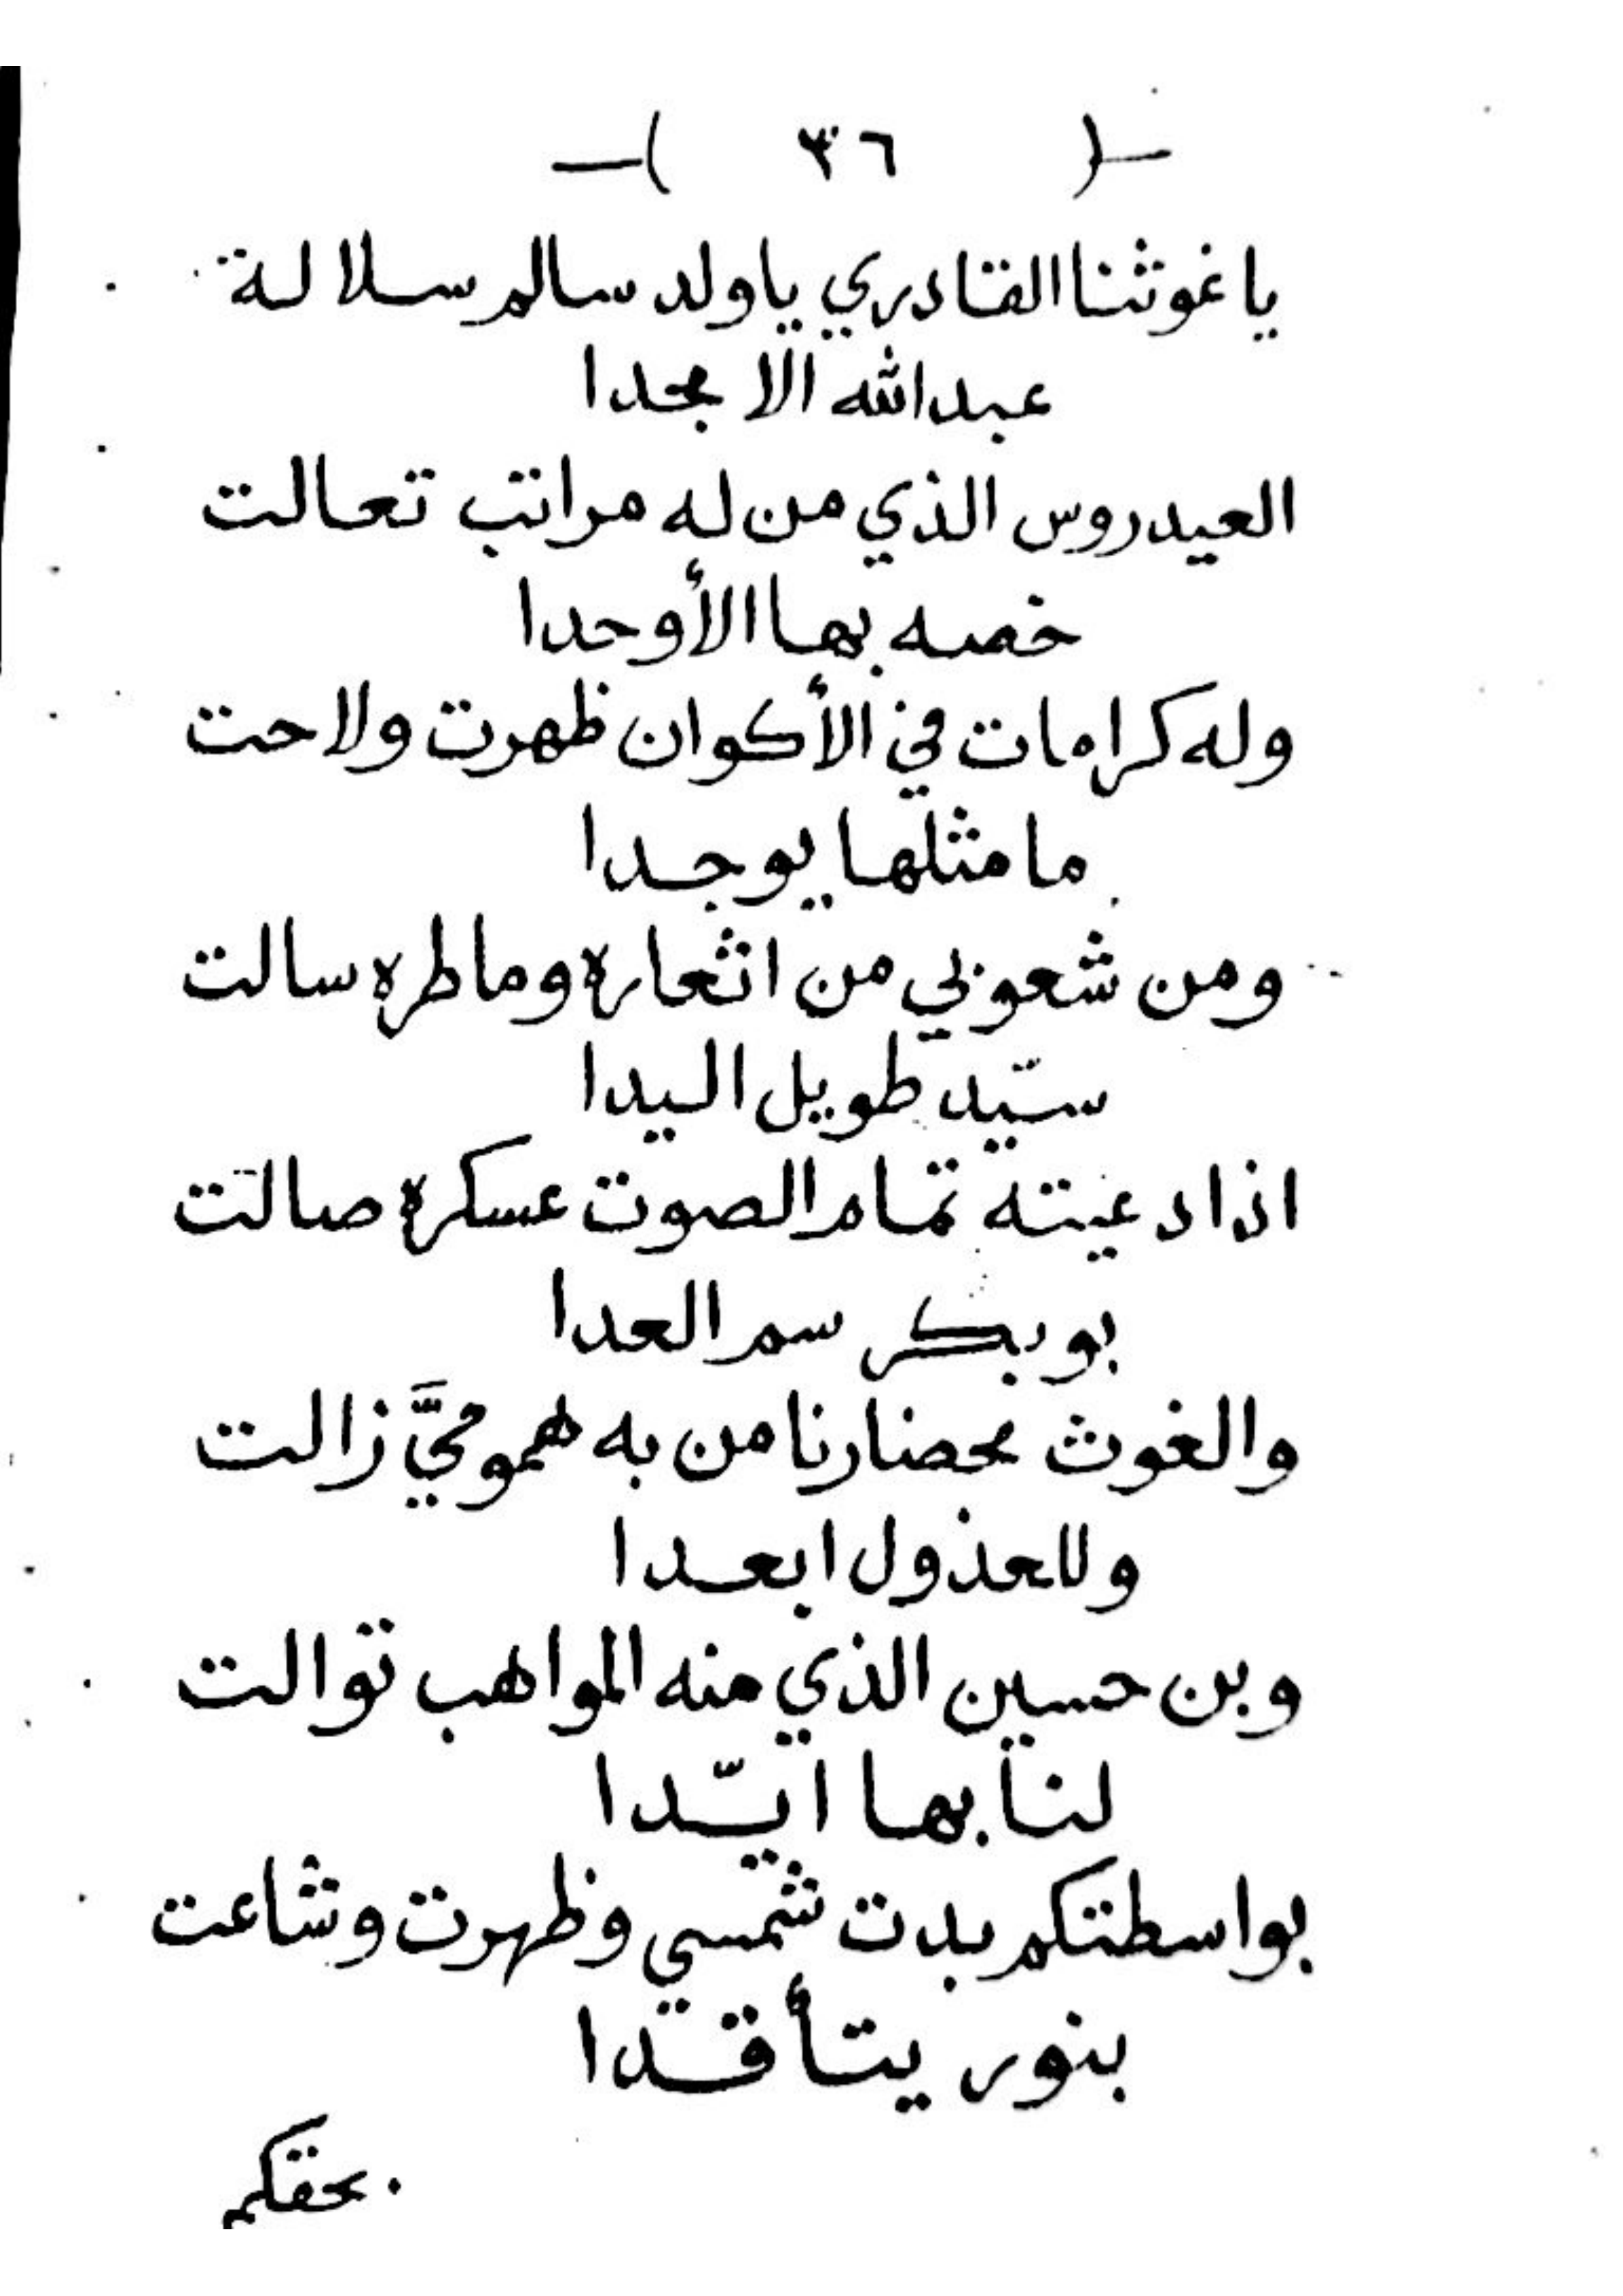 -( ٣٦ )-
ياغوثنا القادري ياولد سالم سلالة
عبدالله الامجدا
العيدروس الذي من له مراتب تعالت
خصه بها الأوحدا
وله كرامات في الأكوان ظهرت ولاحت
ما مثلها يوجدا
ومن شعوبي من اثعاره وماطره سالت
سيّد طويل اليدا
اذا دعيته تمام الصوت عسكره صالت
بوبكر سم العدا
والغوث محضارنا من به همومي زالت
وللعذول ابعدا
وبن حسين الذي منه المواهب توالت
لنا بها ايّدا
بواسطتكم بدت شمسي وظهرت وشاعت
بنور يتأقدا
بحقكم